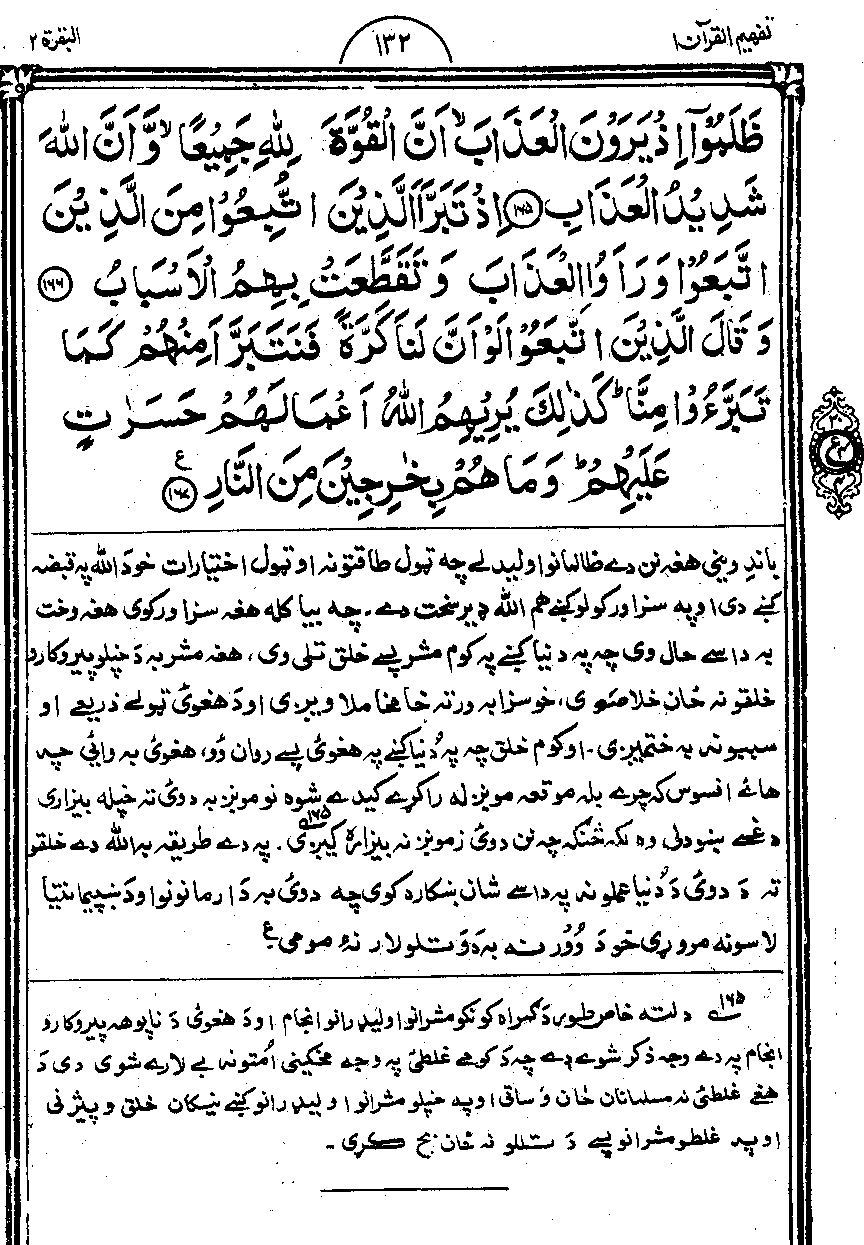 تفهيم القرآن ۱
۱۳۲
البقرة ۲
ظَلَمُوْٓا اِذْ يَرَوْنَ الْعَذَابَ ۙ اَنَّ الْقُوَّةَ لِلّٰهِ جَمِيْعًا ۙ وَّاَنَّ اللّٰهَ
شَدِيْدُ الْعَذَابِ ۱۶۵ اِذْ تَبَرَّاَ الَّذِيْنَ اتُّبِعُوْا مِنَ الَّذِيْنَ
اتَّبَعُوْا وَرَاَوُا الْعَذَابَ وَتَقَطَّعَتْ بِهِمُ الْاَسْبَابُ ۱۶۶
وَقَالَ الَّذِيْنَ اتَّبَعُوْا لَوْ اَنَّ لَنَا كَرَّةً فَنَتَبَرَّاَ مِنْهُمْ كَمَا
تَبَرَّءُوْا مِنَّا ؕ كَذٰلِكَ يُرِيْهِمُ اللّٰهُ اَعْمَالَهُمْ حَسَرٰتٍ
عَلَيْهِمْ ؕ وَمَا هُمْ بِخٰرِجِيْنَ مِنَ النَّارِ ۱۶۷ ع
باندِ ويني هغه نن دے ظالمانو اوليدلے چه ټول طاقتونه او ټول اختيارات خود الله په قبضه
کښے دی او په سزا ورکولو کښے هم الله ډير سخت دے. چه بيا کله هغه سزا ورکوی هغه وخت
به داسے حال وی چه په دنيا کښے په کوم مشر پسے خلق تلی وی، هغه مشر به دَ خپلو پيروکارو
خلقو نه ځان خلاصوی، خو سزا به ورته خامخا ملاويږی او دَ هغوئ ټولے ذريعے او
سببونه به ختميږی. او کوم خلق چه په دُنيا کښے په هغوئ پسے روان وُو، هغوئ به وائي چه
هائے افسوس که چرے بله موقعه مونږ له راکړے کيدے شوه نو مونږ به دوئ نه خپله بيزاری
دغسے ښودلی وه لکه څنګه چه نن دوئ زمونږ نه بيزاره کيږی ۱۶۵. په دے طريقه به الله دے خلقو
ته دَ دوئ دَ دُنيا عملونه په داسے شان ښکاره کوی چه دوئ به دَ ارمانونو او دَ پښيمانتيا
لاسونه مروړی خو دَ وُور نه به دَ وتلو لار نۀ مومی ع
۱۶۵ دلته خاص طور دَ ګمراه کونکو مشرانو او ليډرانو انجام او دَ هغوئ دَ ناپوهه پيروکارو
انجام په دے وجه ذکر شوے دے چه دَ کومے غلطئ په وجه مخکينی اُمتونه بے لارے شوی دی دَ
هغے غلطئ نه مسلمانان ځان وساتی او په خپلو مشرانو او ليډرانو کښے نيکان خلق وپيژنی
او په غلطو مشرانو پسے دَ تللو نه ځان بچ کړی۔